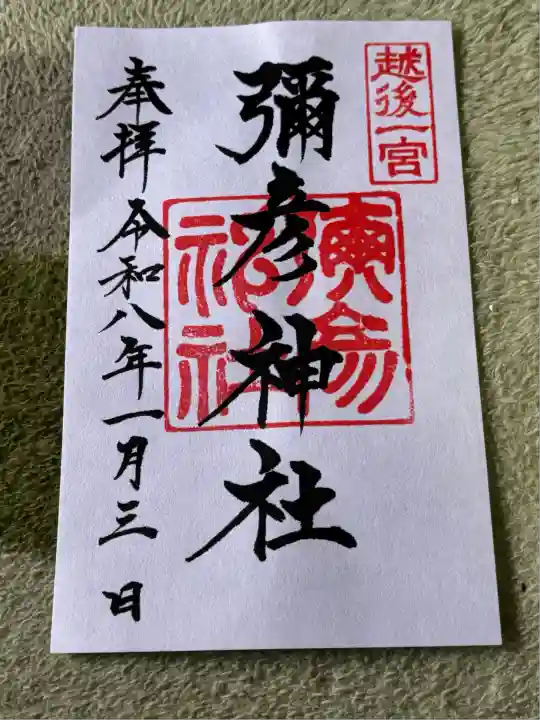 越後一宮
彌彦神社
彌彦神社
奉拝 令和八年一月三日